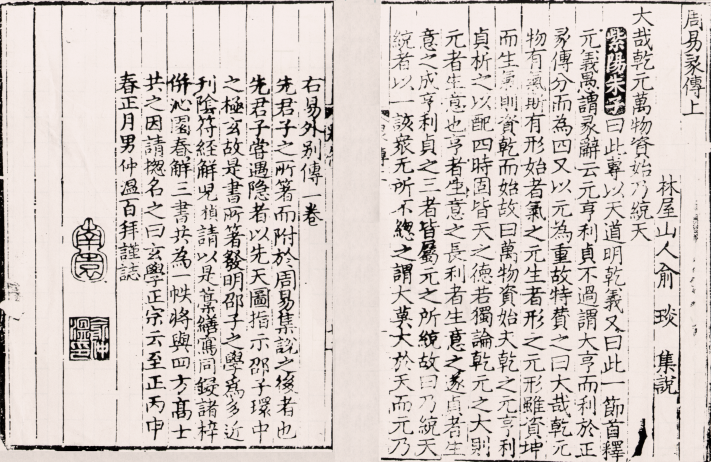 周易彖傳上
林屋山人俞 琰 集說
大哉乾元萬物資始乃統天
紫陽朱子曰此專以天道明乾義又曰此一節首釋
元義愚謂彖辭云元亨利貞不過謂大亨而利於正
彖傳分而為四又以元為重故特賛之曰大哉乾元
物有氣斯有形始者氣之元生者形之元形雖資坤
而生氣則資乾而始故曰萬物資始夫乾之元亨利
貞析之以配四時固皆天之德若獨論乾元之大則
元者生意也亨者生意之長利者生意之遂貞者生
意之成亨利貞之三者皆屬元之所統故曰乃統天
統者以一該衆無所不緫之謂大莫大於天而元乃
右易外别傳一卷
先君子之所著而附於周易集說之後者也
先君子嘗遇隐者以先天圖指示邵子環中
之極玄故是書所著發明邵子之學為多近
刋陰符經解兒楨請以是藁繕寫同錄諸梓
併沁園春解三書共為一帙將與四方髙士
共之因請揔名之曰玄學正宗云至正丙申
春正月男仲温百拜謹誌